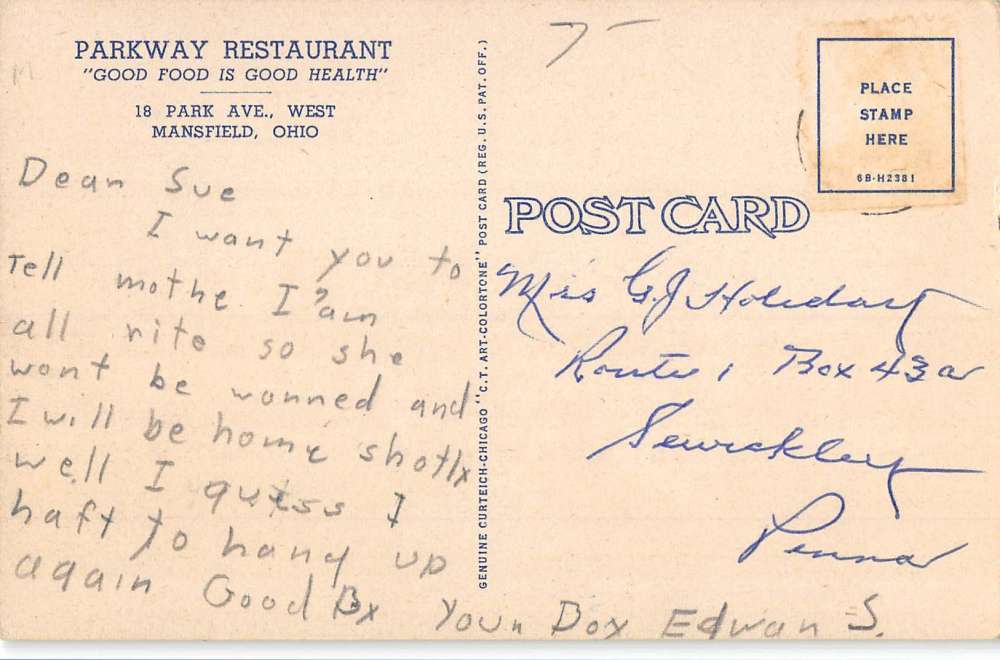 PARKWAY RESTAURANT
"GOOD FOOD IS GOOD HEALTH"
18 PARK AVE., WEST
MANSFIELD, OHIO
Dear Sue
I want you to
Tell mothe I am
all rite so she
wont be worried and
I will be home shotly
well I guess I
haft to hang up
again Good By Your Boy Edwan S.
GENUINE CURTEICH-CHICAGO "C.T. ART-COLORTONE" POST CARD (REG. U.S. PAT. OFF.)
PLACE
STAMP
HERE
6B-H2381
POST CARD
G.J.
Route 1 Box 43a
Sewickley
Penna